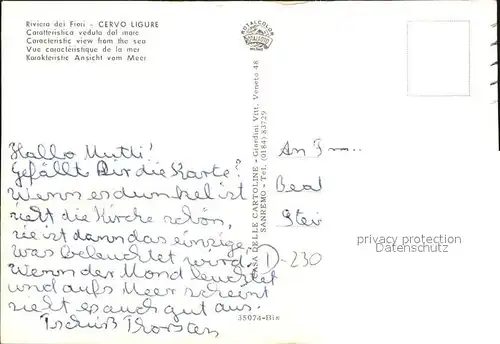 Riviera dei Fiori - CERVO LIGURE
Caratteristica veduta dal mare
Characteristic view from the sea
Vue caractéristique de la mer
Karakteristic Ansicht vom Meer
ROTALCOLOR
Hallo Mutti!
Gefällt Dir die Karte?
Wenn es dunkel ist
sieht die Kirche schön,
sie ist dann das einzige
was beleuchtet wird!
Wenn der Mond leuchtet
und aufs Meer scheint
sieht es auch gut aus.
Tschüß Thorsten
CASA DELLE CARTOLINE - Giardini Vitt. Veneto 48
SANREMO - Tel. (0184) 83729
35074-Bis
An Fra..
Beat
Stei
1-230
privacy protection
AnsichtsKarten